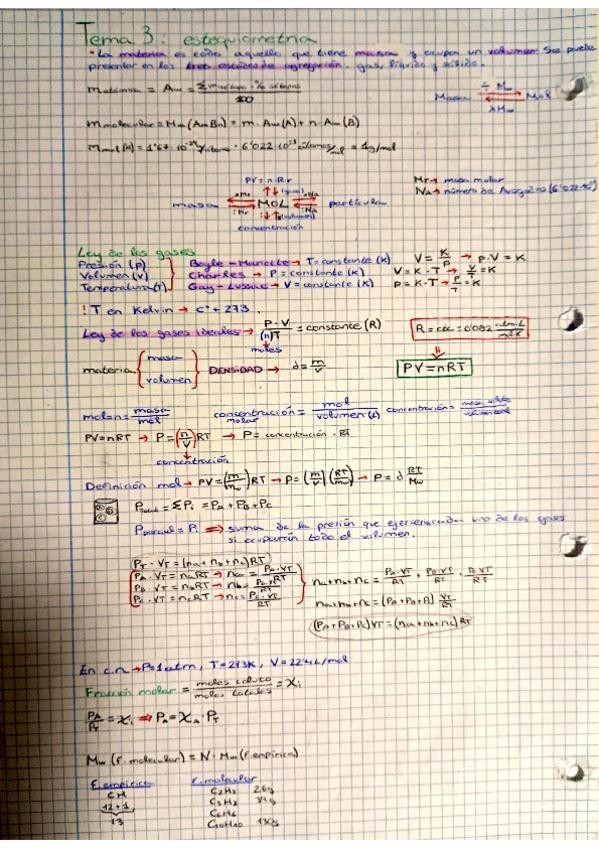 Tema 3: estequiometria
• La materia es todo aquello que tiene masa y ocupa un volumen. Se puede
presentar en los tres estados de agregación. gas, líquido y sólido.
m atómica = Aw =
100
Masa ÷ Mw Mol
x Mw
m molecular = Mw (AmBn) = m · Aw (A) + n · Aw (B)
m mol (H) = 1'67 · 10⁻²⁴ g/átomo · 6'022 · 10²³ átomos/mol = 1g/mol
PV = n·R·T
masa MOL partícula
·NA
:Mr :NA
concentración
Mr → masa molar
NA → número de Avogadro (6'022·10²³)
Ley de los gases
Presión (p) Boyle - Mariotte → T = constante (K) V = K/P → p·V = K
Volumen (v) Charles → P = constante (K) V = K · T → V/T = K
Temperatura (T) Gay - Lussac → V = constante (K) P = K · T → P/T = K
! T en Kelvin → Cº + 273.
Ley de los gases ideales → P·V/(n)T = constante (R) R = cte = 0'082 atm·L/mol·K
moles
materia { masa volumen } DENSIDAD → d = m/v PV = nRT
mol = n = masa/mol concentración molar = mol/volumen (L) concentración =
PV = nRT → P = (n/V) RT → P = concentración · RT
concentración
Definición mol → PV = (m/Mw) RT → P = (m/V) (RT/Mw) → P = d RT/Mw
P total = ΣPi = PA + PB + PC
P parcial = Pi → suma de la presión que cada uno de los gases
si ocuparan todo el volumen.
PT · VT = (na + nb + nc) RT
PA · VT = naRT → na = PA·VT/RT
PB · VT = nbRT → nb = PB·VT/RT
PC · VT = ncRT → nc = PC·VT/RT
na + nb + nc = PA·VT/RT + PB·VT/RT + PC·VT/RT
na + nb + nc = (PA + PB + PC) VT/RT
(PA + PB + PC) VT = (na + nb + nc) RT
En c.n → P = 1 atm, T = 273K, V = 22'4 L/mol
Fracción molar = moles soluto/moles totales = Xi
PA/PT = Xi ⇒ PA = XA · PT
Mw (F. molecular) = N · Mw (F. empírica)
F. empírica F. molecular
CH C2H2 26g
12 + 1
13 C6H6
C10H10 130g